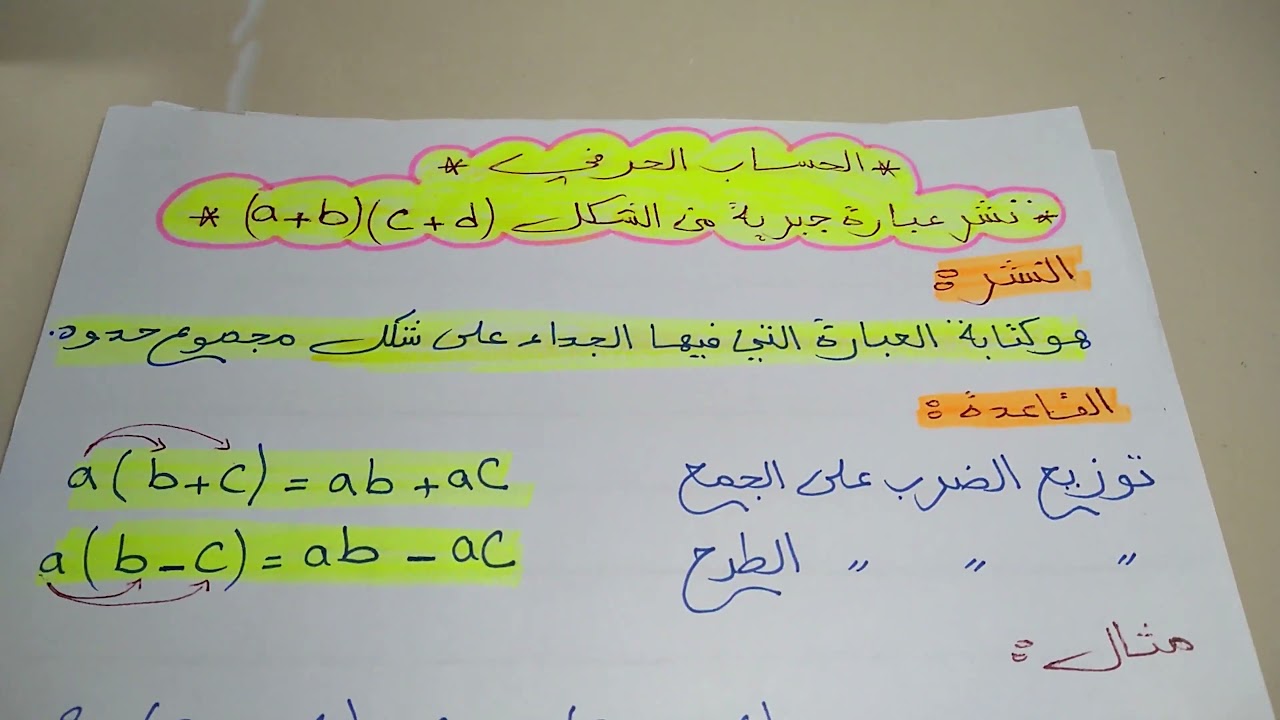 * الحساب الحرفي *
* نشر عبارة جبرية من الشكل (a+b)(c+d) *
النشر :
هو كتابة العبارة التي فيها الجداء على شكل مجموع حدود.
القاعدة :
توزيع الضرب على الجمع a(b+c) = ab + ac
" " " الطرح a(b-c) = ab - ac
مثال :